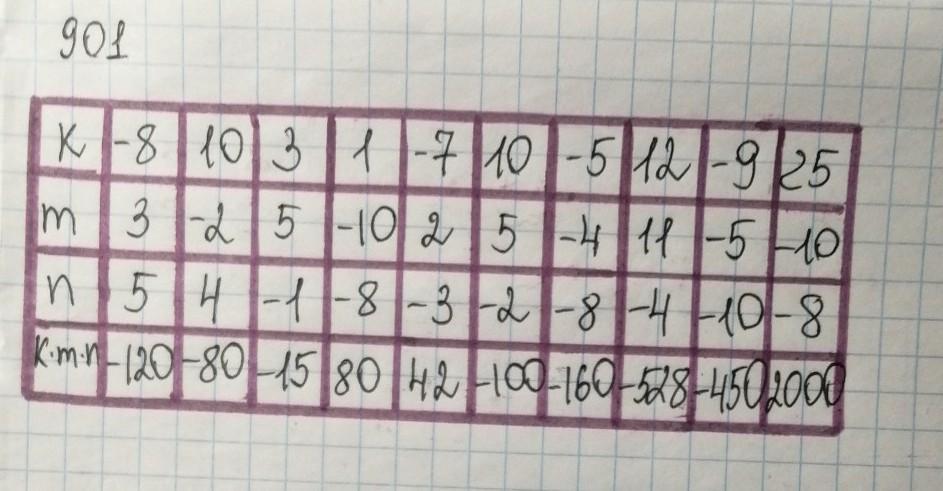 901
к -8 10 3 1 -7 10 -5 12 -9 25
m 3 -2 5 -10 2 5 -4 11 -5 -10
n 5 4 -1 -8 -3 -2 -8 -4 -10 -8
к·m·n -120 -80 -15 80 42 -100 -160 -528 -450 2000